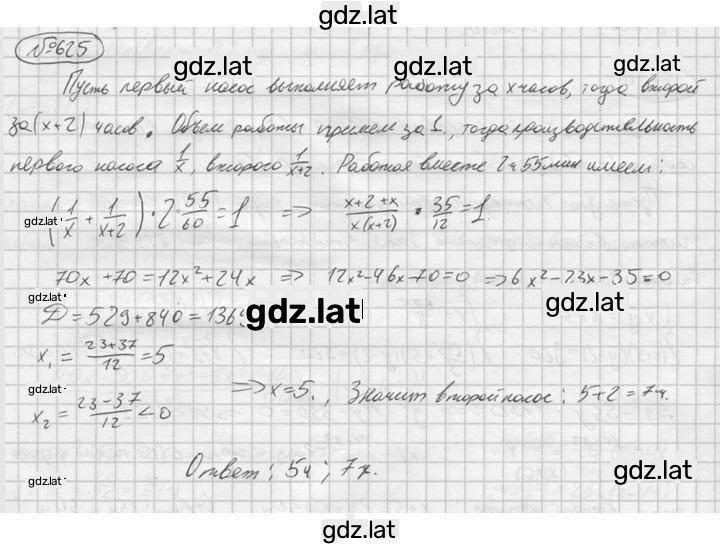 gdz.lat
№625
gdz.lat gdz.lat
Пусть первый насос выполняет работу за x часов, тогда второй
за (x+2) часов. Объем работы примем за 1., тогда производительность
первого насоса 1/x, второго 1/(x+2). Работая вместе 2ч 55 мин имеем:
gdz.lat
(1/x + 1/(x+2)) · 2 55/60 = 1 => (x+2+x)/(x(x+2)) · 35/12 = 1.
70x + 70 = 12x² + 24x => 12x² - 46x - 70 = 0 => 6x² - 23x - 35 = 0
gdz.lat gdz.lat
Д = 529 + 840 = 1369 gdz.lat
x₁ = (23+37)/12 = 5
gdz.lat
x₂ = (23-37)/12 < 0 => x = 5. , Значит второй насос: 5+2 = 7ч.
Ответ: 5ч; 7ч.
gdz.lat gdz.lat
gdz.lat